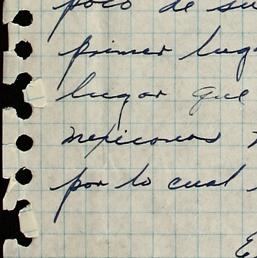 poco de su
primer luga
lugar que
mexicanos
por lo cual
E